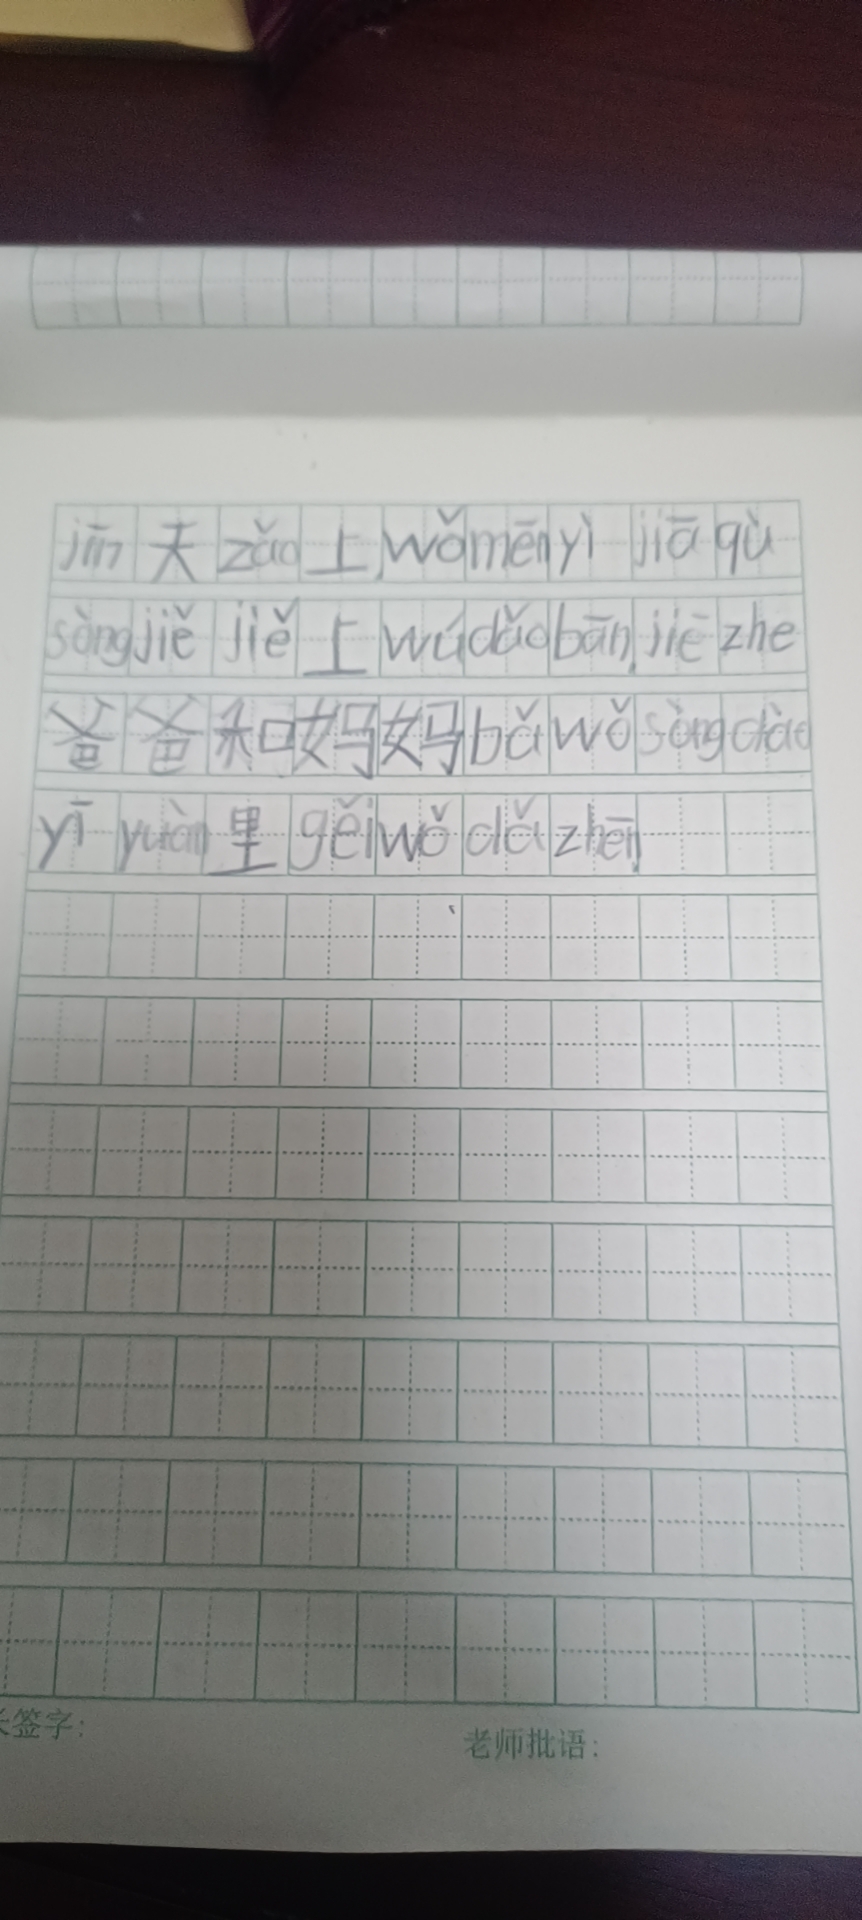 jīn天zǎo上,wǒmēnyì jiāqù
sòngjiějiě上wúdǎobān,jiēzhe
爸爸和妈妈bǎwǒsòngdào
yīyuàn里gěiwǒdǎzhēn,
签字:
老师批语: